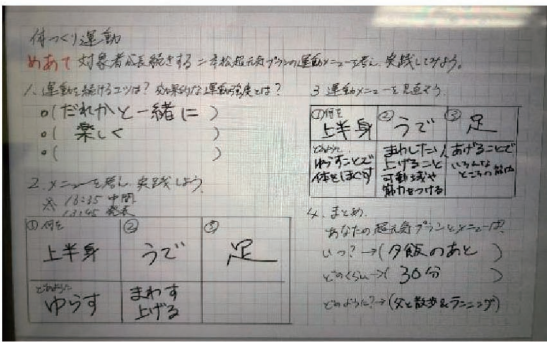 体つくり運動
めあて 対象者が長続きする=高松超元気プランの運動メニューを考え、実践してみよう。
1. 運動を続けるコツは? 効果的な運動強度とは?
○(だれかと一緒に)
○(楽しく)
○( )
2. メニューを考え、実践しよう。
※ 16:35 中間
発表
①何を ② ③
上半身 うで 足
どのように
ゆらす まわす
上げる
3 運動メニューを見直そう
①何を ② ③
上半身 うで 足
どのように
ゆらすことで
体をほぐす
まわしたり、
上げること
可動域や
筋力をつける
あげることで
いろんな
ところの
4. まとめ
あなたの超元気プランとメニューは?
いつ?→(夕飯のあと)
どのくらい→(30分)
どのように?→(父と散歩&ランニング)